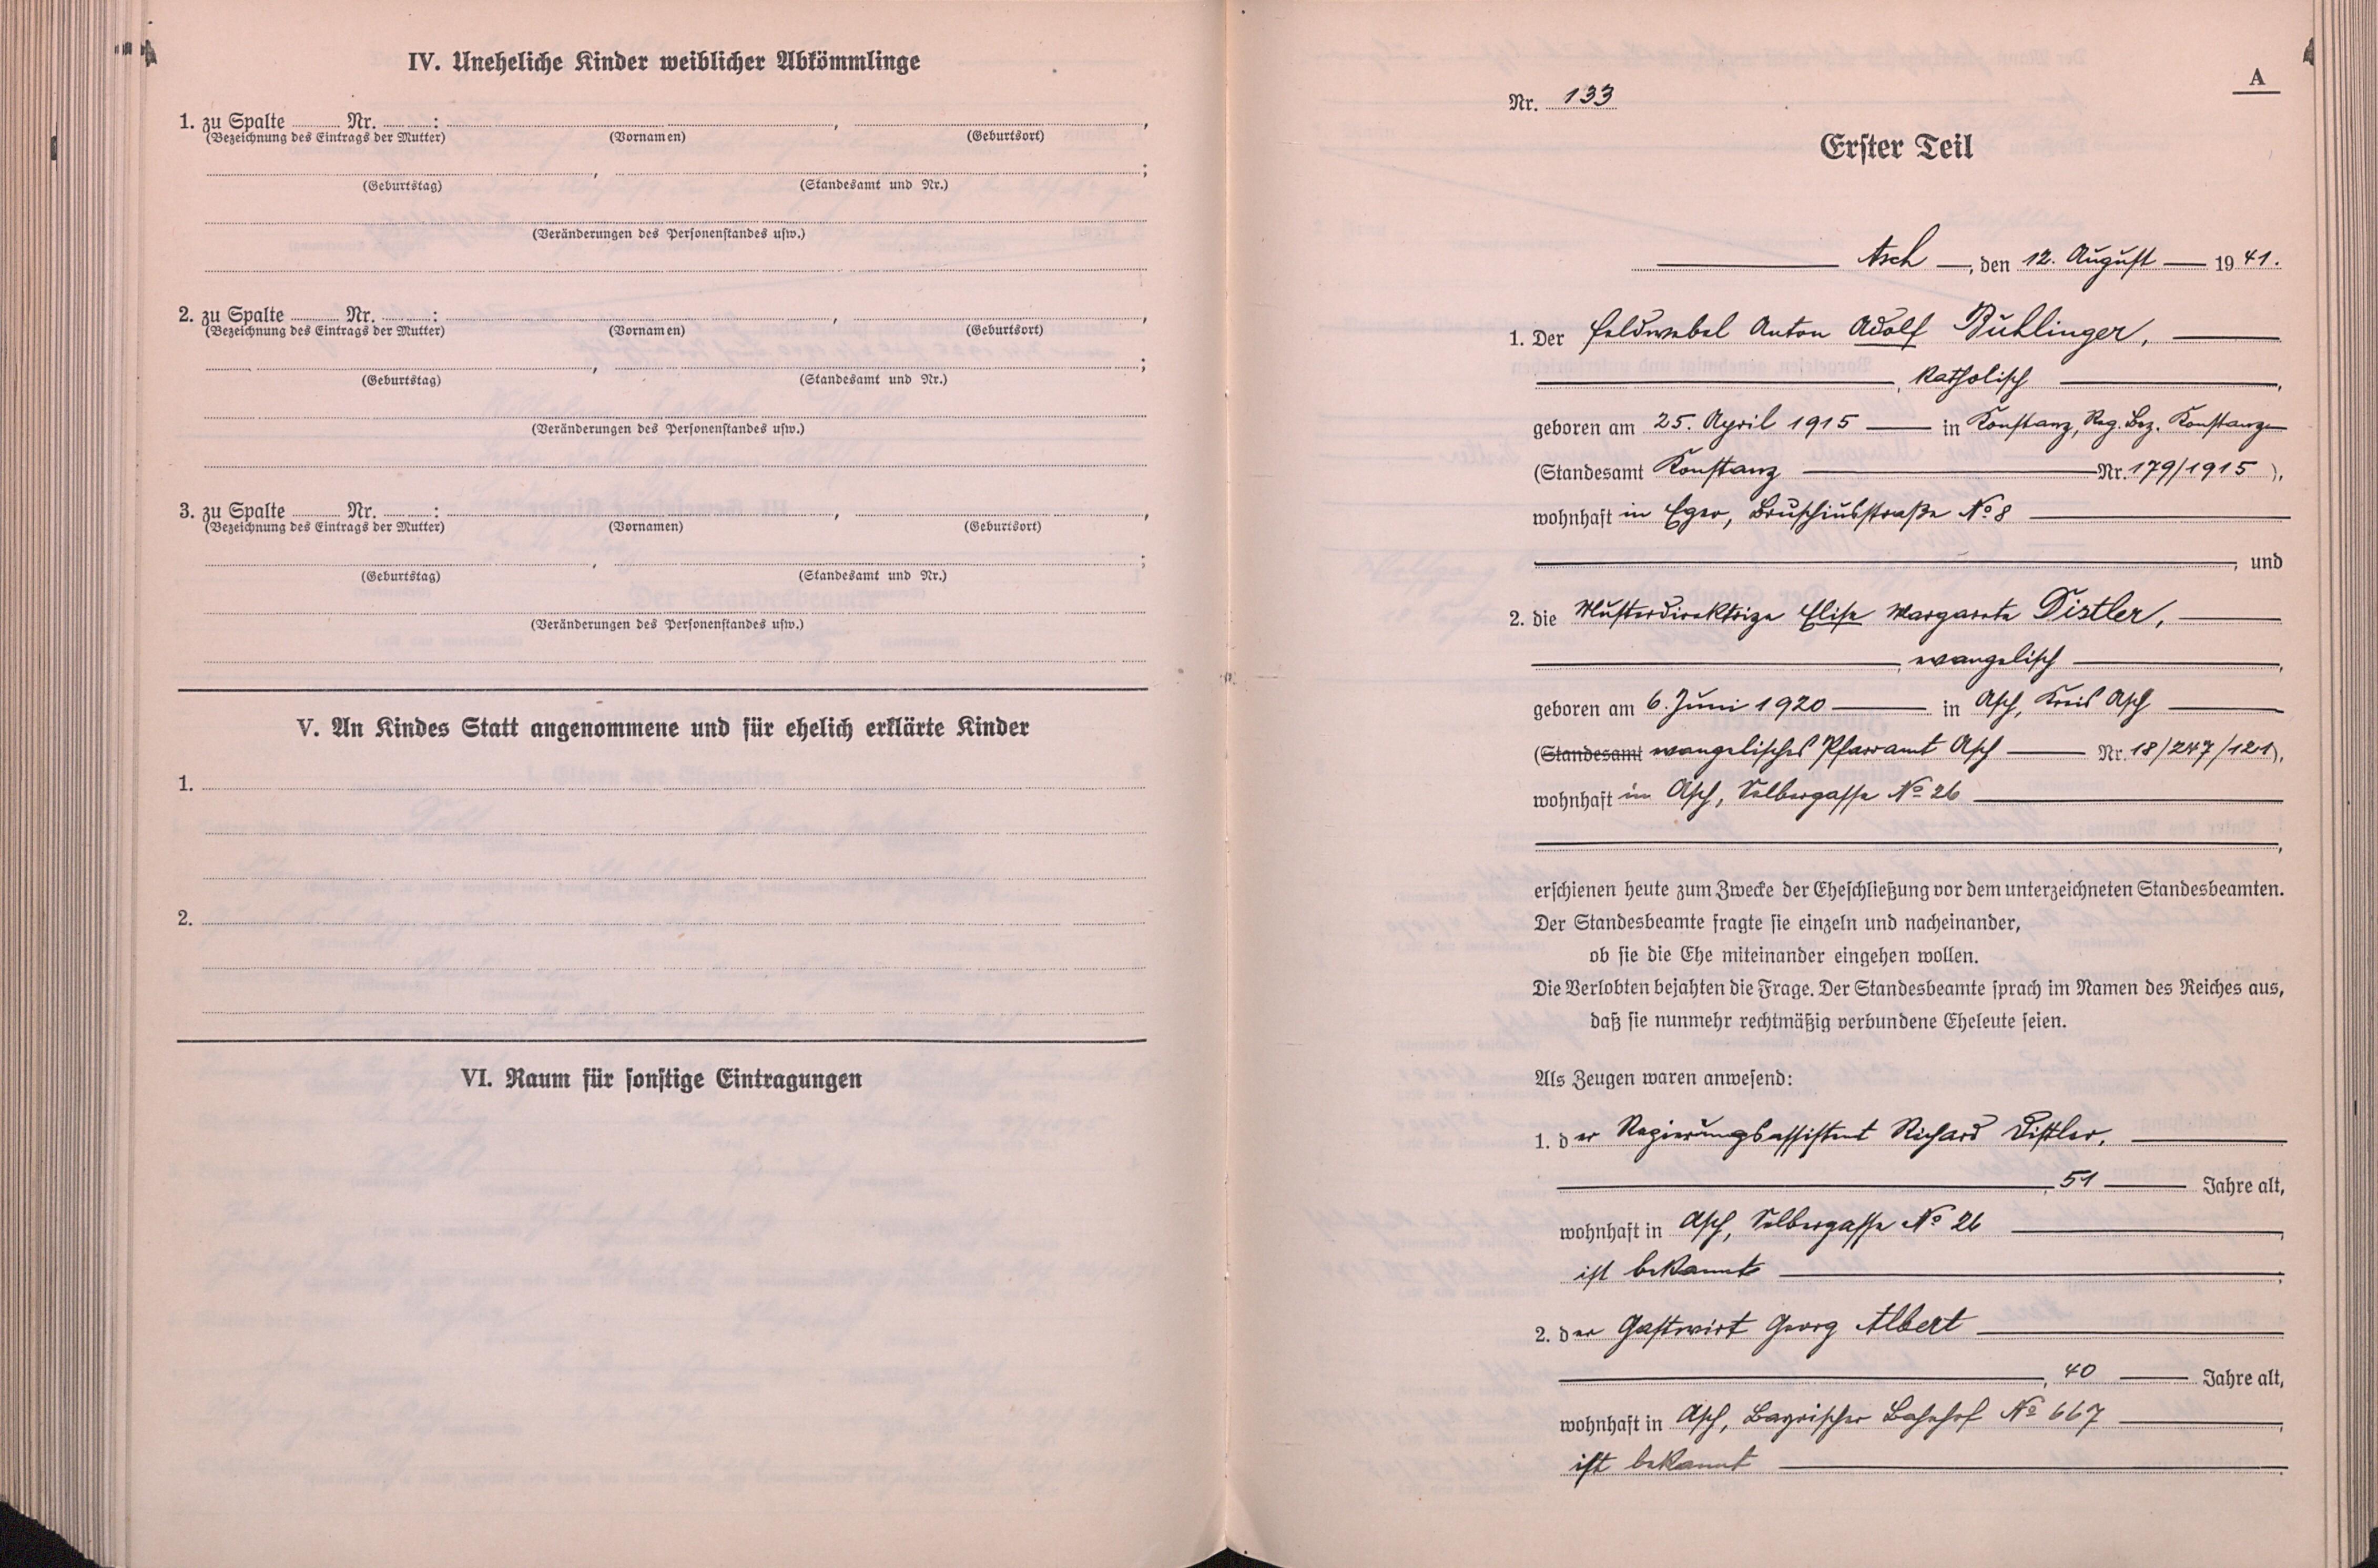 IV. Uneheliche Kinder weiblicher Abkömmlinge
1. zu Spalte Nr. : , ,
(Bezeichnung des Eintrags der Mutter) (Vornamen) (Geburtsort)
, ;
(Geburtstag) (Standesamt und Nr.)
(Veränderungen des Personenstandes usw.)
2. zu Spalte Nr. : , ,
(Bezeichnung des Eintrags der Mutter) (Vornamen) (Geburtsort)
, ;
(Geburtstag) (Standesamt und Nr.)
(Veränderungen des Personenstandes usw.)
3. zu Spalte Nr. : , ,
(Bezeichnung des Eintrags der Mutter) (Vornamen) (Geburtsort)
, ;
(Geburtstag) (Standesamt und Nr.)
(Veränderungen des Personenstandes usw.)
V. An Kindes Statt angenommene und für ehelich erklärte Kinder
1.
2.
VI. Raum für sonstige Eintragungen
A
Nr. 133
Erster Teil
Asch, den 12. August 1941.
1. Der Feldwebel Anton Adolf Bühlinger,
, katholisch,
geboren am 25. April 1915 in Konstanz, Reg. Bez. Konstanz
(Standesamt Konstanz Nr. 179/1915),
wohnhaft in Eger, Bruschiusstraße No 8
, und
2. die Musterdirektrize Elise Margarete Distler,
, evangelisch,
geboren am 6. Juni 1920 in Asch, Kreis Asch
(Standesamt evangelisches Pfarramt Asch Nr. 18/247/121),
wohnhaft in Asch, Selbergasse No 26
,
erschienen heute zum Zwecke der Eheschließung vor dem unterzeichneten Standesbeamten.
Der Standesbeamte fragte sie einzeln und nacheinander,
ob sie die Ehe miteinander eingehen wollen.
Die Verlobten bejahten die Frage. Der Standesbeamte sprach im Namen des Reiches aus,
daß sie nunmehr rechtmäßig verbundene Eheleute seien.
Als Zeugen waren anwesend:
1. der Regierungsassistent Richard Distler,
, 51 Jahre alt,
wohnhaft in Asch, Selbergasse No 26,
ist bekannt;
2. der Gastwirt Georg Albert
, 40 Jahre alt,
wohnhaft in Asch, Bayrischer Bahnhof No 667,
ist bekannt.